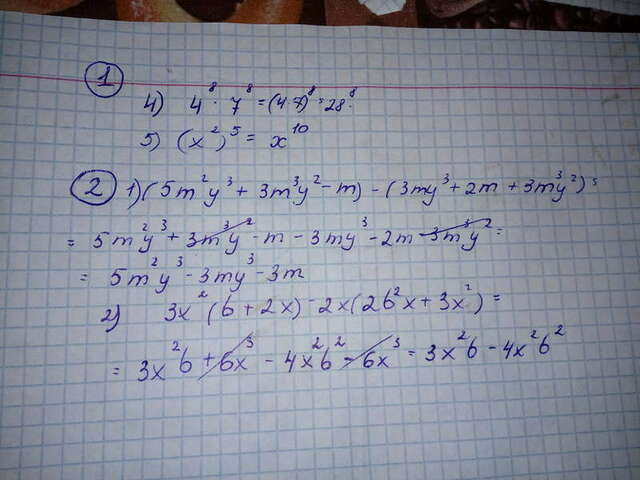 1
4) 4⁸ · 7⁸ = (4·7)⁸ = 28⁸.
5) (x²)⁵ = x¹⁰
2 1) (5m²y³ + 3m³y² - m) - (3my³ + 2m + 3m³y²) =
= 5m²y³ + 3m³y² - m - 3my³ - 2m - 3m³y² =
= 5m²y³ - 3my³ - 3m
2) 3x²(b + 2x) - 2x(2b²x + 3x²) =
= 3x²b + 6x³ - 4x²b² - 6x³ = 3x²b - 4x²b²